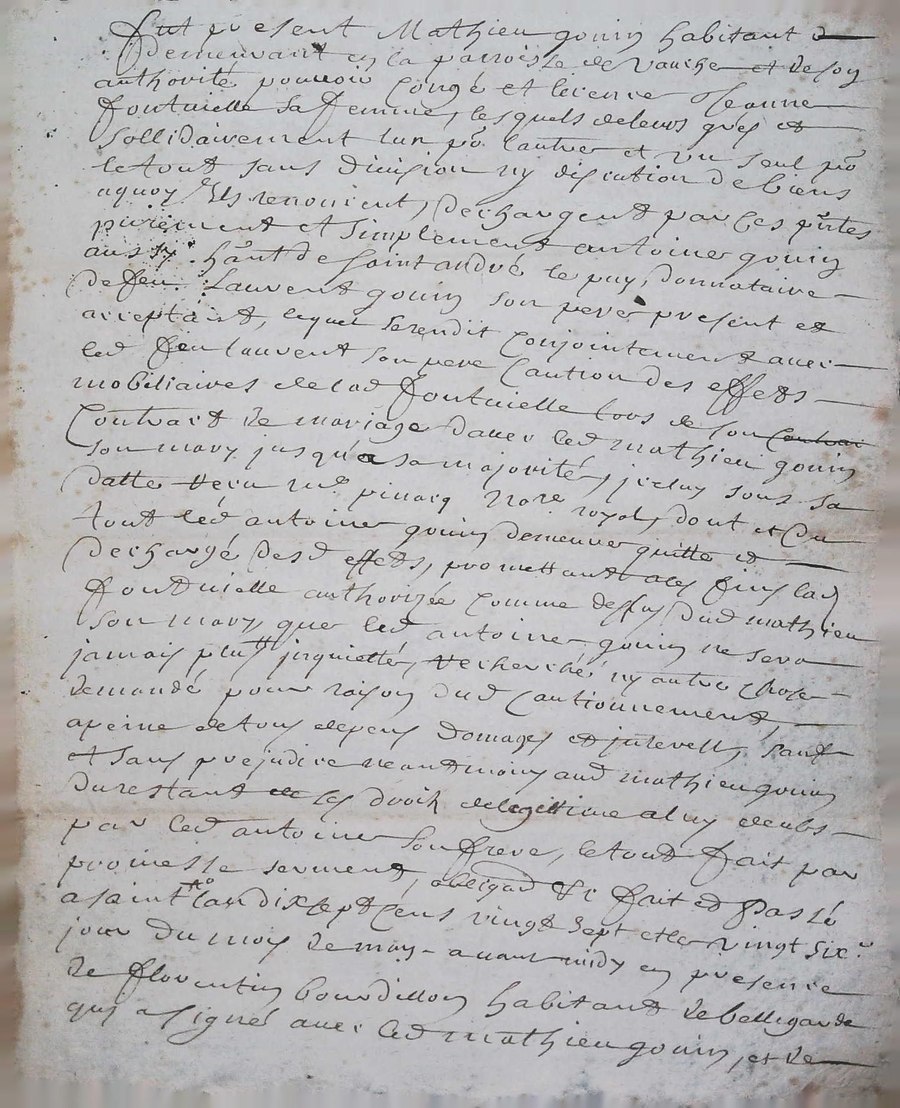 fut present Mathieu gouin habitant d
demeurant en la parroisse de vauche et de son
authorité pouvoir Congé et licence Jeanne
fontuielle sa femme, lesquels de leurs grés et
sollidairement lun po lautre et un seul po
le tout sans division ny discution de biens
aquoy Ils renoncent, dechargent par Ces pntes
purement et simplement antoine gouin
aussy hant de Saint andré le puy, donnataire
de feu Laurent gouin son pere present et
acceptant, lequel serendit Conjointement avec
led feu laurent son pere Caution des effets
mobiliaires de lad fontuielle lors de son
Contract de mariage davec led mathieu gouin
son mary, jusqua sa majorité, jceluy sous sa
datte receu me pinacq nore royal, dont et du
tout led antoine gouin demeure quitte et
dechargé desd effets, promettant a ces fins lad
fontuielle authorizée comme dessus dud mathieu
son mary, que led antoine gouin ne sera
jamais plus jnquietté, recherché, ny autre chose
demandé pour raison dud Cautionnement,
apeine de tous depens domages et jnterests, sauf
et sans prejudice neantmoins aud mathieu gouin
du restant de ses droits de legittime a luy deubs
par led antoine son frere, le tout fait par
promesse serment, obligaon &c fait et Passé
a saint lan dix sept cens vingt sept et le vingt six.e
jour du mois de may avant midy en presence
de florentin bourdillon habitant de belligarde
qui a signé avec led mathieu gouin, et de